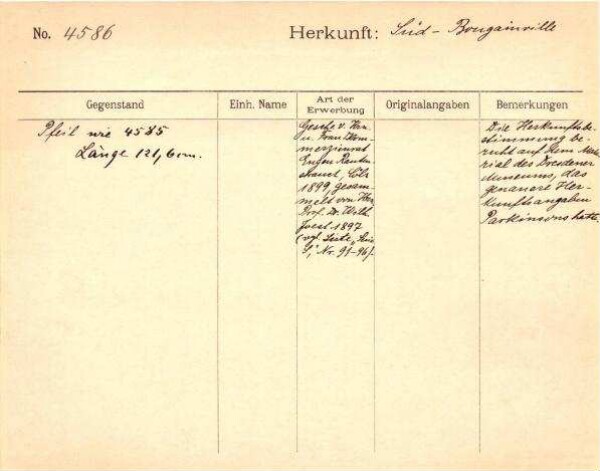 No. 4586
Herkunft: Süd-Bougainville
Gegenstand
Einh. Name
Art der Erwerbung
Originalangaben
Bemerkungen
Pfeil wie 4585
Länge 121,6 cm.
Gesch. v. Hrn.
u. Frau Kom-
merzienrat
Eugen Rauten-
strauch, Cöln
1899, gesam-
melt von Herrn
Prof. Dr. Wilh.
Joest 1897
(vgl. Liste
S, Nr. 91-96).
Die Herkunftsbe-
stimmung be-
ruht auf dem Mate-
rial des Dresdener
Museums, das
genauere Her-
kunftsangaben
Parkinsons hatte.